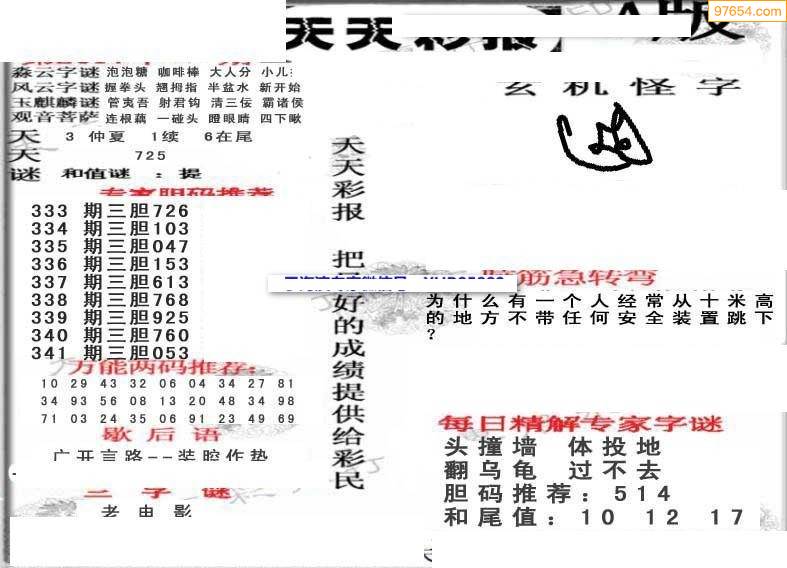 97654.com
天天彩报 A版
森云字谜 泡泡糖 咖啡棒 大人分 小儿
风云字谜 握拳头 翘拇指 半盆水 新开始
玉麒麟谜 管夷吾 射君钩 清三佞 霸诸侯
观音菩萨 连根藕 一碰头 瞪眼睛 四下瞅
天 3 仲夏 1续 6在尾
天 725
谜 和值谜 : 提
专家胆码推荐
333 期三胆726
334 期三胆103
335 期三胆047
336 期三胆153
337 期三胆613
338 期三胆768
339 期三胆925
340 期三胆760
341 期三胆053
万能两码推荐:
10 29 43 32 06 04 34 27 81
34 93 56 08 13 20 48 34 98
71 03 24 35 06 91 23 49 69
歇后语
广开言路--装腔作势
三字谜
老电影
天天彩报 把 好的成绩提供给彩民
玄机怪字
脑筋急转弯
为什么有一个人经常从十米高
的地方不带任何安全装置跳下
?
每日精解专家字谜
头撞墙 体投地
翻乌龟 过不去
胆码推荐: 514
和尾值: 10 12 17